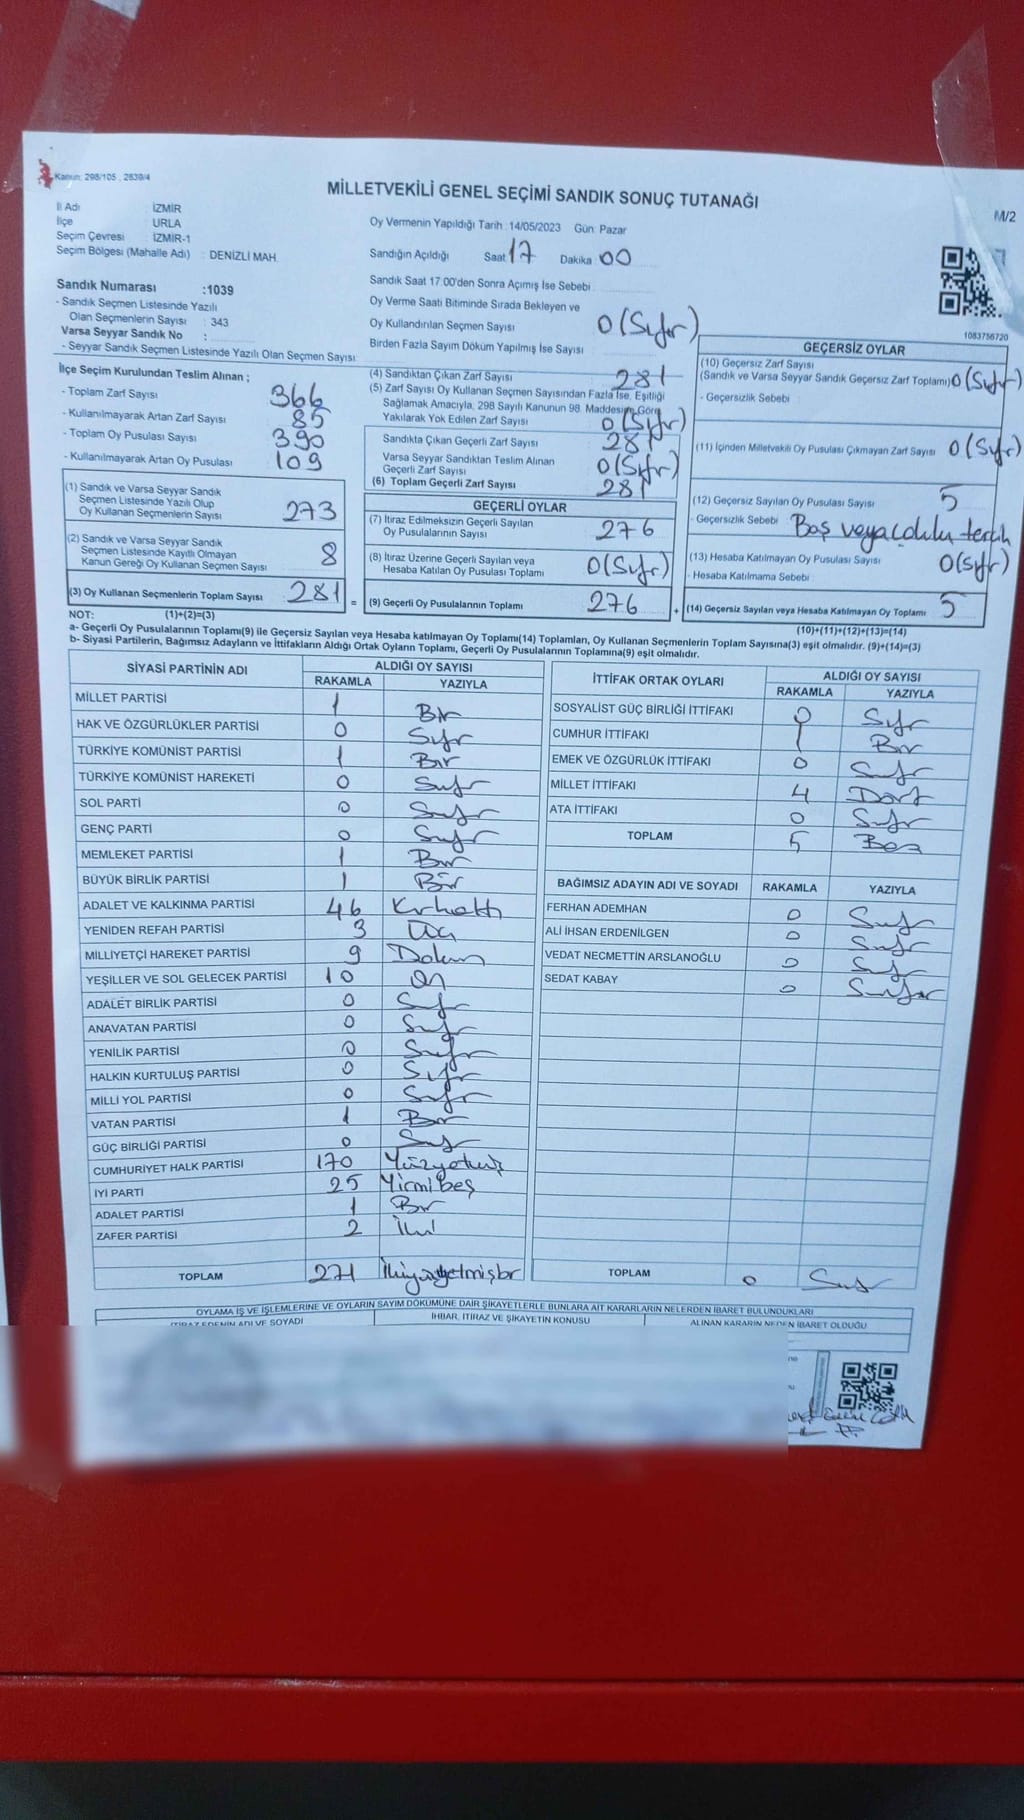 Kanun: 298/105 , 2839/4
MİLLETVEKİLİ GENEL SEÇİMİ SANDIK SONUÇ TUTANAĞI
M/2
İl Adı : İZMİR
İlçe : URLA
Seçim Çevresi : İZMİR-1
Seçim Bölgesi (Mahalle Adı) : DENİZLİ MAH.
Oy Vermenin Yapıldığı Tarih : 14/05/2023 Gün: Pazar
Sandığın Açıldığı Saat 17 Dakika 00
Sandık Saat 17:00'den Sonra Açımış İse Sebebi
Oy Verme Saati Bitiminde Sırada Bekleyen ve
Oy Kullandırılan Seçmen Sayısı 0 (Sıfır)
Birden Fazla Sayım Döküm Yapılmış İse Sayısı
1083756720
Sandık Numarası :1039
- Sandık Seçmen Listesinde Yazılı
Olan Seçmenlerin Sayısı : 343
Varsa Seyyar Sandık No :
- Seyyar Sandık Seçmen Listesinde Yazılı Olan Seçmen Sayısı
İlçe Seçim Kurulundan Teslim Alınan ;
- Toplam Zarf Sayısı 366
- Kullanılmayarak Artan Zarf Sayısı 85
- Toplam Oy Pusulası Sayısı 390
- Kullanılmayarak Artan Oy Pusulası 109
(1) Sandık ve Varsa Seyyar Sandık
Seçmen Listesinde Yazılı Olup
Oy Kullanan Seçmenlerin Sayısı 273
(2) Sandık ve Varsa Seyyar Sandık
Seçmen Listesinde Kayıtlı Olmayan
Kanun Gereği Oy Kullanan Seçmen Sayısı 8
(3) Oy Kullanan Seçmenlerin Toplam Sayısı 281 =
(4) Sandıktan Çıkan Zarf Sayısı 281
(5) Zarf Sayısı Oy Kullanan Seçmen Sayısından Fazla İse, Eşitliği
Sağlamak Amacıyla, 298 Sayılı Kanunun 98. Maddesine Göre
Yakılarak Yok Edilen Zarf Sayısı 0 (Sıfır)
Sandıkta Çıkan Geçerli Zarf Sayısı 281
Varsa Seyyar Sandıktan Teslim Alınan
Geçerli Zarf Sayısı 0 (Sıfır)
(6) Toplam Geçerli Zarf Sayısı 281
GEÇERLİ OYLAR
(7) İtiraz Edilmeksizin Geçerli Sayılan
Oy Pusulalarının Sayısı 276
(8) İtiraz Üzerine Geçerli Sayılan veya
Hesaba Katılan Oy Pusulası Toplamı 0 (Sıfır)
(9) Geçerli Oy Pusulalarının Toplamı 276 +
GEÇERSİZ OYLAR
(10) Geçersiz Zarf Sayısı
(Sandık ve Varsa Seyyar Sandık Geçersiz Zarf Toplamı) 0 (Sıfır)
- Geçersizlik Sebebi
(11) İçinden Milletvekili Oy Pusulası Çıkmayan Zarf Sayısı 0 (Sıfır)
(12) Geçersiz Sayılan Oy Pusulası Sayısı 5
- Geçersizlik Sebebi Boş veya çoklu tercih
(13) Hesaba Katılmayan Oy Pusulası Sayısı 0 (Sıfır)
- Hesaba Katılmama Sebebi
(14) Geçersiz Sayılan veya Hesaba Katılmayan Oy Toplamı 5
NOT: (1)+(2)=(3)
(10)+(11)+(12)+(13)=(14)
a- Geçerli Oy Pusulalarının Toplamı(9) ile Geçersiz Sayılan veya Hesaba katılmayan Oy Toplamı(14) Toplamları, Oy Kullanan Seçmenlerin Toplam Sayısına(3) eşit olmalıdır. (9)+(14)=(3)
b- Siyasi Partilerin, Bağımsız Adayların ve İttifakların Aldığı Ortak Oyların Toplamı, Geçerli Oy Pusulalarının Toplamına(9) eşit olmalıdır.
SİYASİ PARTİNİN ADI ALDIĞI OY SAYISI
RAKAMLA YAZIYLA
MİLLET PARTİSİ 1 Bir
HAK VE ÖZGÜRLÜKLER PARTİSİ 0 Sıfır
TÜRKİYE KOMÜNİST PARTİSİ 1 Bir
TÜRKİYE KOMÜNİST HAREKETİ 0 Sıfır
SOL PARTİ 0 Sıfır
GENÇ PARTİ 0 Sıfır
MEMLEKET PARTİSİ 1 Bir
BÜYÜK BİRLİK PARTİSİ 1 Bir
ADALET VE KALKINMA PARTİSİ 46 Kırkaltı
YENİDEN REFAH PARTİSİ 3 Üç
MİLLİYETÇİ HAREKET PARTİSİ 9 Dokuz
YEŞİLLER VE SOL GELECEK PARTİSİ 10 On
ADALET BİRLİK PARTİSİ 0 Sıfır
ANAVATAN PARTİSİ 0 Sıfır
YENİLİK PARTİSİ 0 Sıfır
HALKIN KURTULUŞ PARTİSİ 0 Sıfır
MİLLİ YOL PARTİSİ 0 Sıfır
VATAN PARTİSİ 1 Bir
GÜÇ BİRLİĞİ PARTİSİ 0 Sıfır
CUMHURİYET HALK PARTİSİ 170 Yüzyetmiş
İYİ PARTİ 25 Yirmibeş
ADALET PARTİSİ 1 Bir
ZAFER PARTİSİ 2 İki
TOPLAM 271 İkiyüzyetmişbir
İTTİFAK ORTAK OYLARI ALDIĞI OY SAYISI
RAKAMLA YAZIYLA
SOSYALİST GÜÇ BİRLİĞİ İTTİFAKI 0 Sıfır
CUMHUR İTTİFAKI 1 Bir
EMEK VE ÖZGÜRLÜK İTTİFAKI 0 Sıfır
MİLLET İTTİFAKI 4 Dört
ATA İTTİFAKI 0 Sıfır
TOPLAM 5 Beş
BAĞIMSIZ ADAYIN ADI VE SOYADI RAKAMLA YAZIYLA
FERHAN ADEMHAN 0 Sıfır
ALİ İHSAN ERDENİLGEN 0 Sıfır
VEDAT NECMETTİN ARSLANOĞLU 0 Sıfır
SEDAT KABAY 0 Sıfır
TOPLAM 0 Sıfır
OYLAMA İŞ VE İŞLEMLERİNE VE OYLARIN SAYIM DÖKÜMÜNE DAİR ŞİKAYETLERLE BUNLARA AİT KARARLARIN NELERDEN İBARET BULUNDUKLARI
İTİRAZ EDENİN ADI VE SOYADI İHBAR, İTİRAZ VE ŞİKAYETİN KONUSU ALINAN KARARIN NEDEN İBARET OLDUĞU